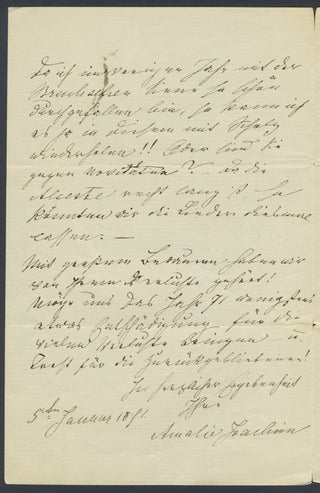 Da ich im vorigen Jahr mit der
Bruchschen Scene so schön
durchgefallen bin, so kann ich
es ja in diesem mit Scholz
wiederholen!! Oder sind Sie
gegen Novitäten? – Da die
Alceste recht lang ist – so
könnten wir die Lieder diesmal
lassen. –
Mit großem Bedauern haben wir
von Ihrem Verluste gehört!
Möge uns das Jahr 71 wenigstens
etwas Entschädigung für die
vielen Verluste bringen u.
Trost für die Zurückgebliebenen!
In herzlicher Ergebenheit
Ihre
Amalie Joachim
5ten Januar 1871